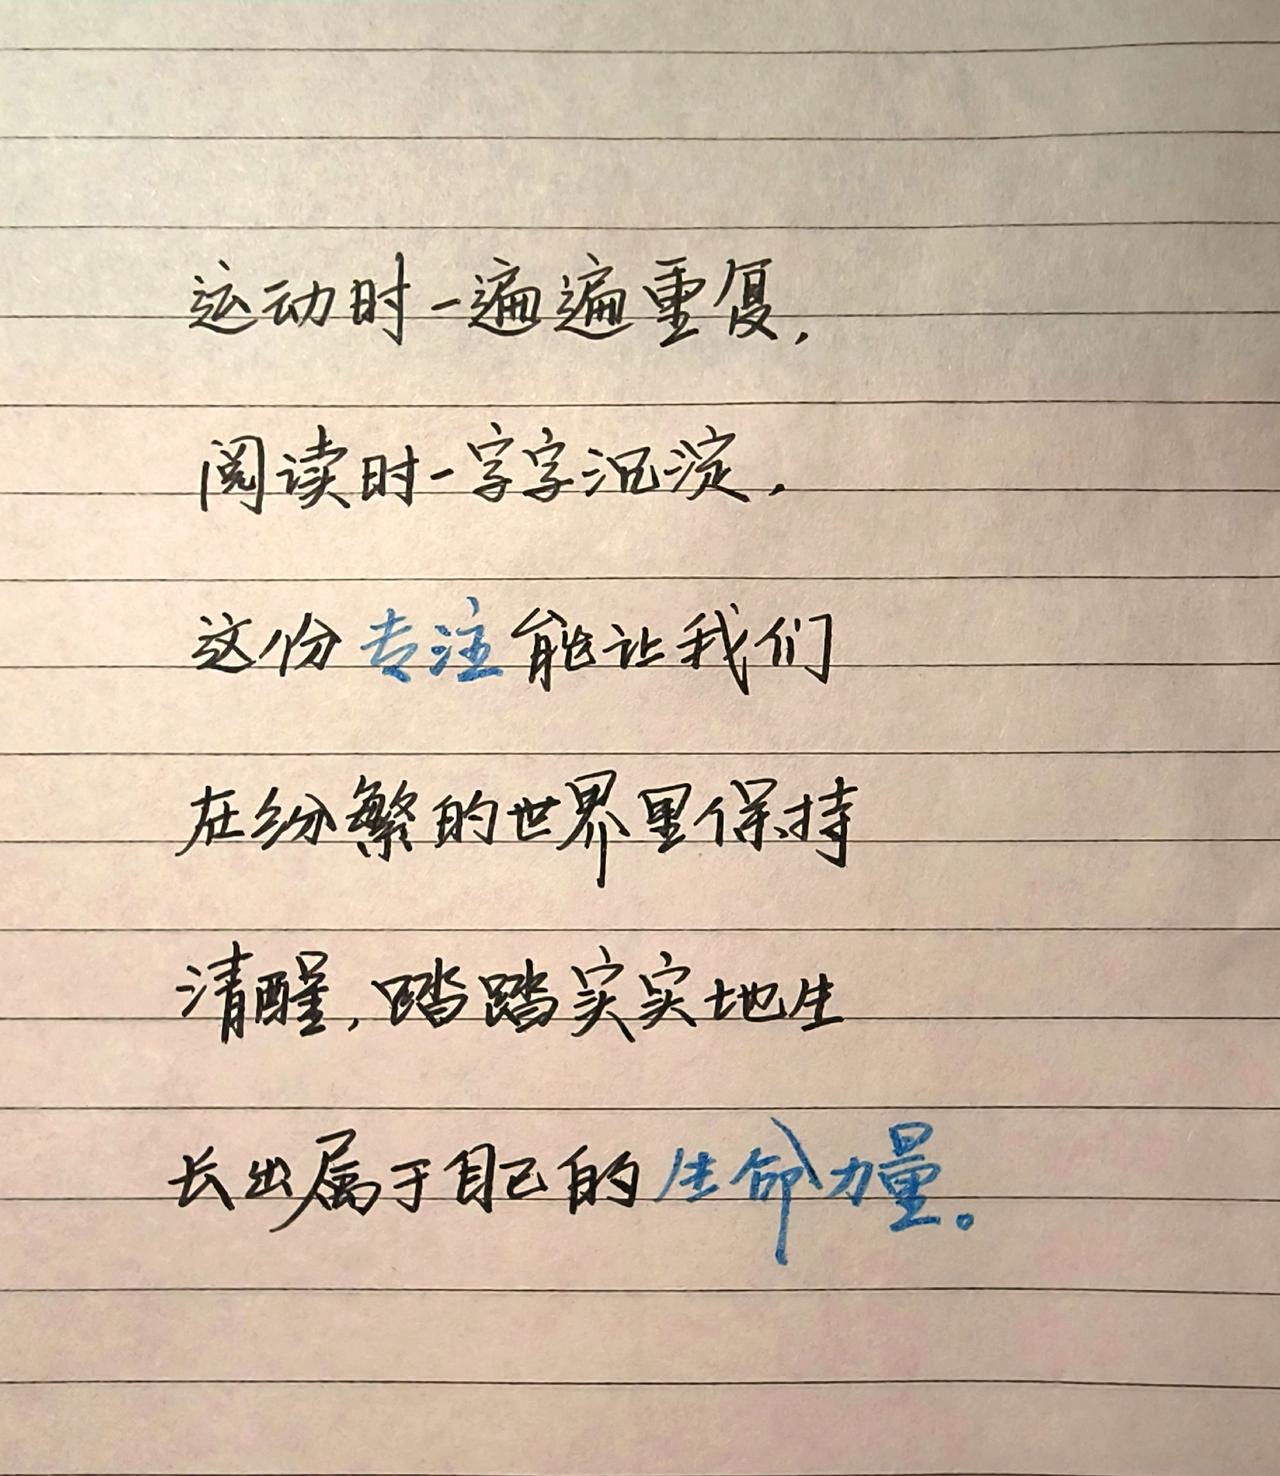 运动时一遍遍重复，
阅读时一字字沉淀，
这份专注能让我们
在纷繁的世界里保持
清醒，踏踏实实地生
长出属于自己的生命力量。